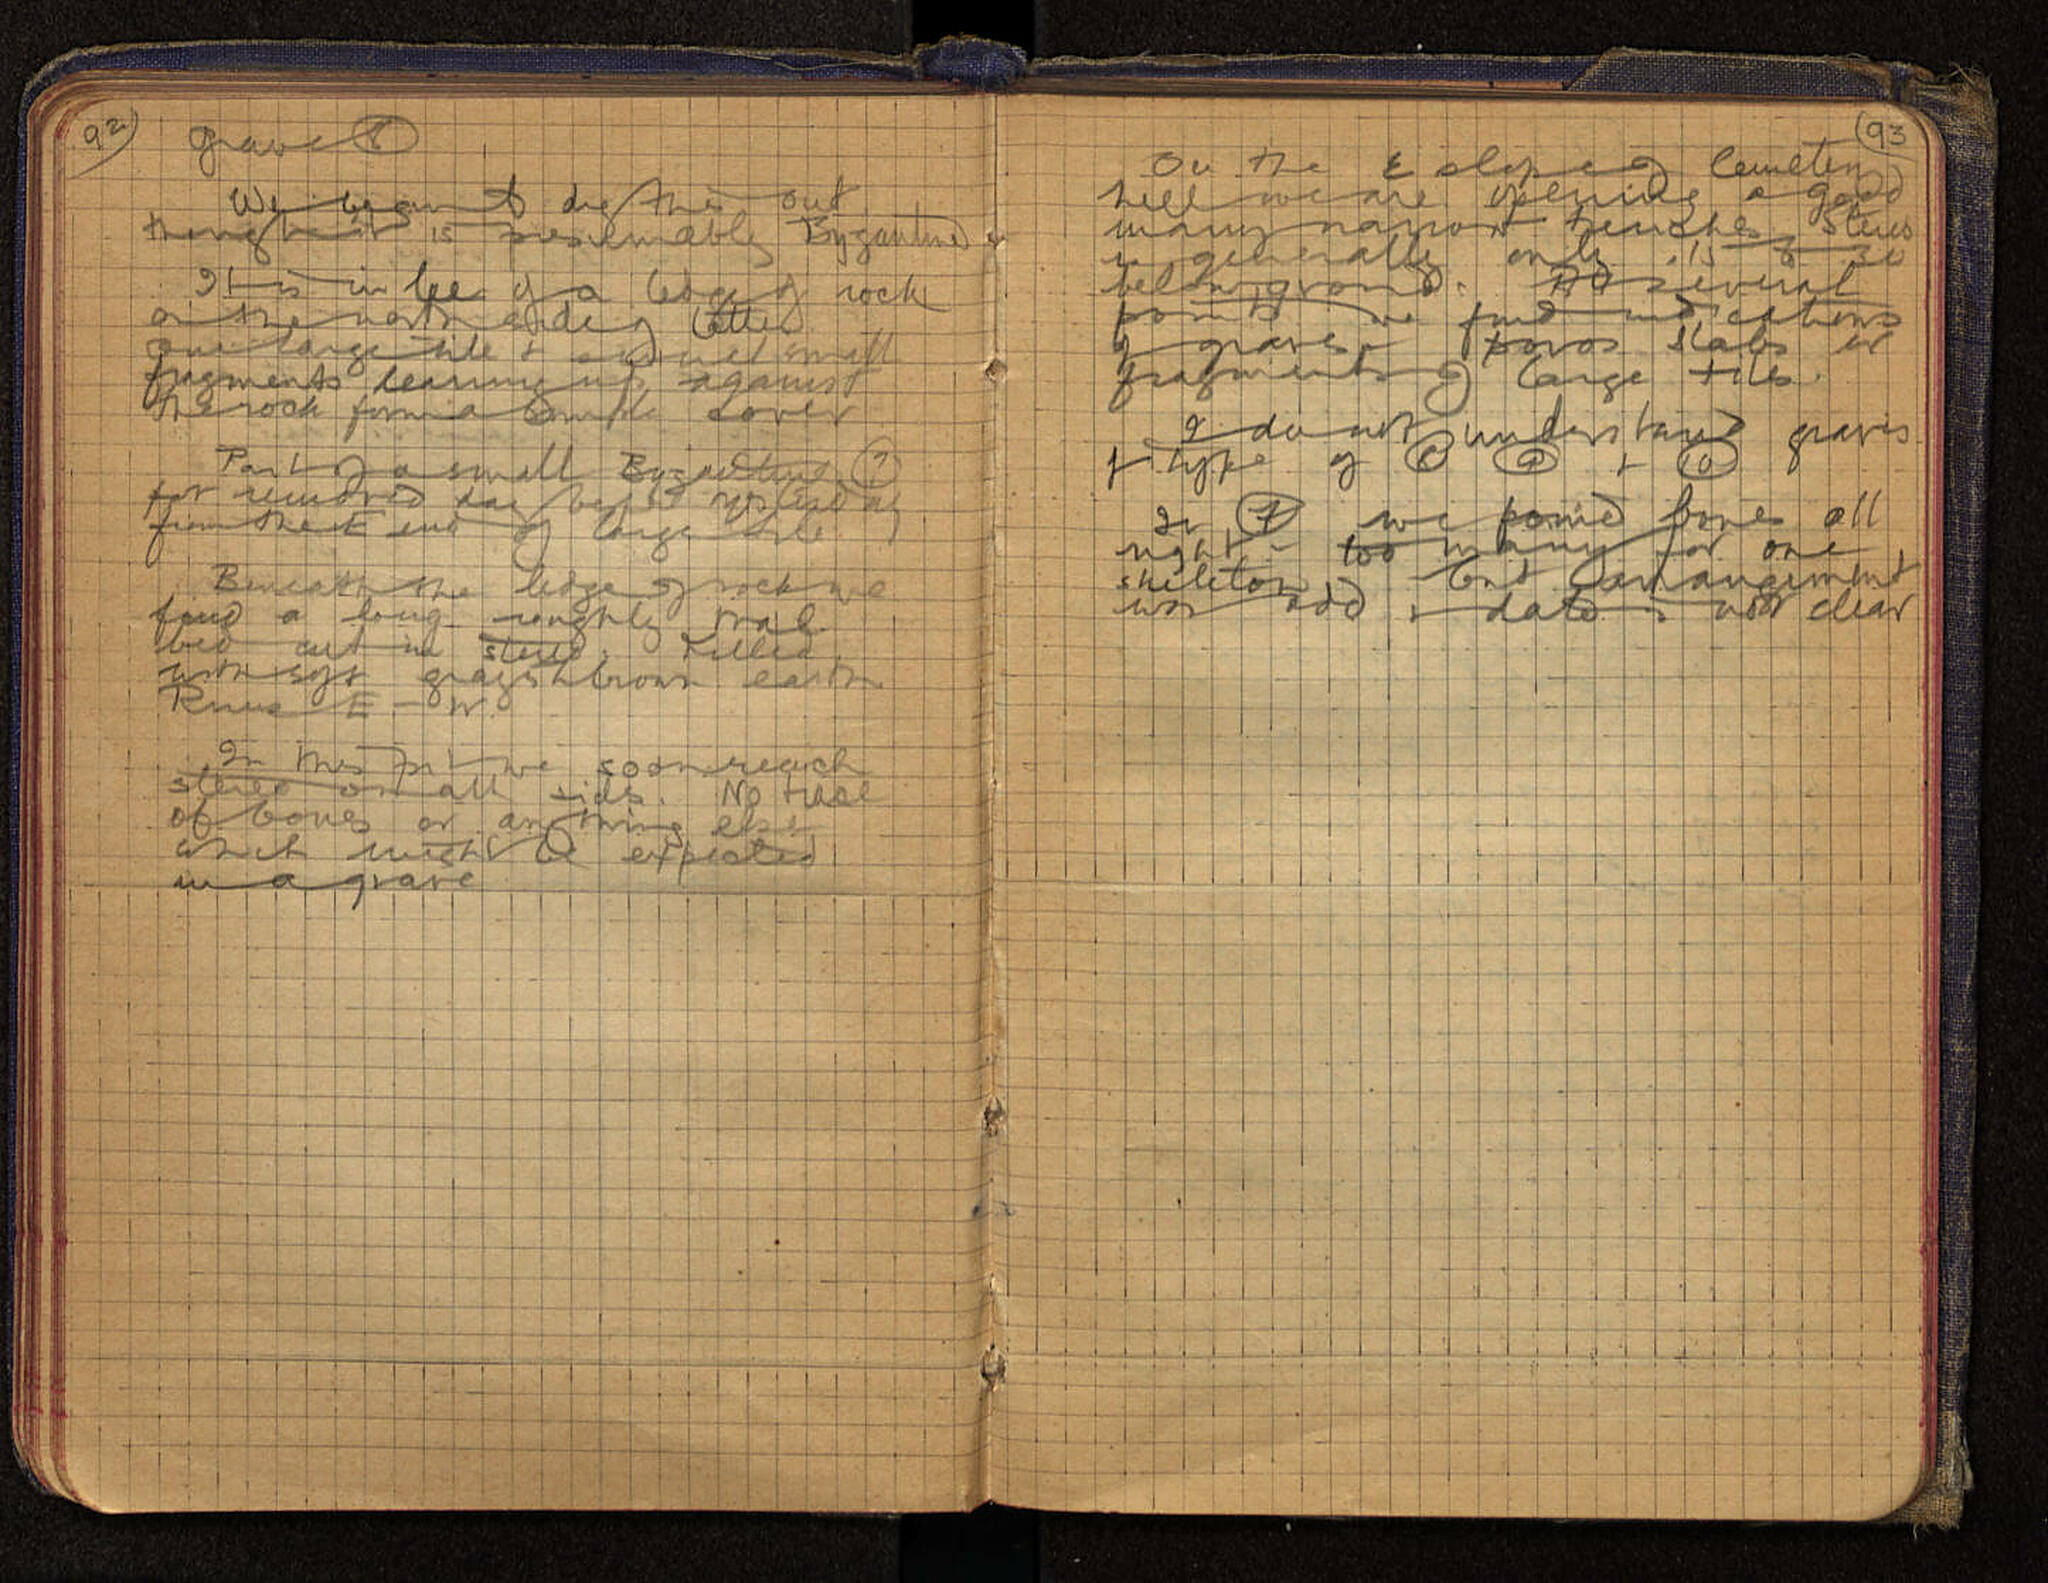 92
Grave 8
We began to dig this out
though it is presumably Byzantine
It is in lee of a ledge of rock
on the north side of latter
One large tile & several small
fragments leaning up against
the rock form a simple cover
Part of a small Byzantine (?)
pot removed day before yesterday
from the E end of large tile
Beneath the ledge of rock we
find a long roughly oval
bed cut in stereo. Filled
with soft grayish brown earth
Runs E - W.
In this pit we soon reach
stereo on all sides. No trace
of bones or anything else
which might be expected
in a grave
93
On the E slope of Cemetery
hill we are opening a good
many narrow trenches. Stereo
is generally only .15 to .30
below ground. At several
points we find indications
of graves - poros slabs or
fragments of large tiles.
I do not understand graves
of type of 8 9 + 10
In 7 we found bones all
right - too many for one
skeleton but arrangement
was odd & date is not clear